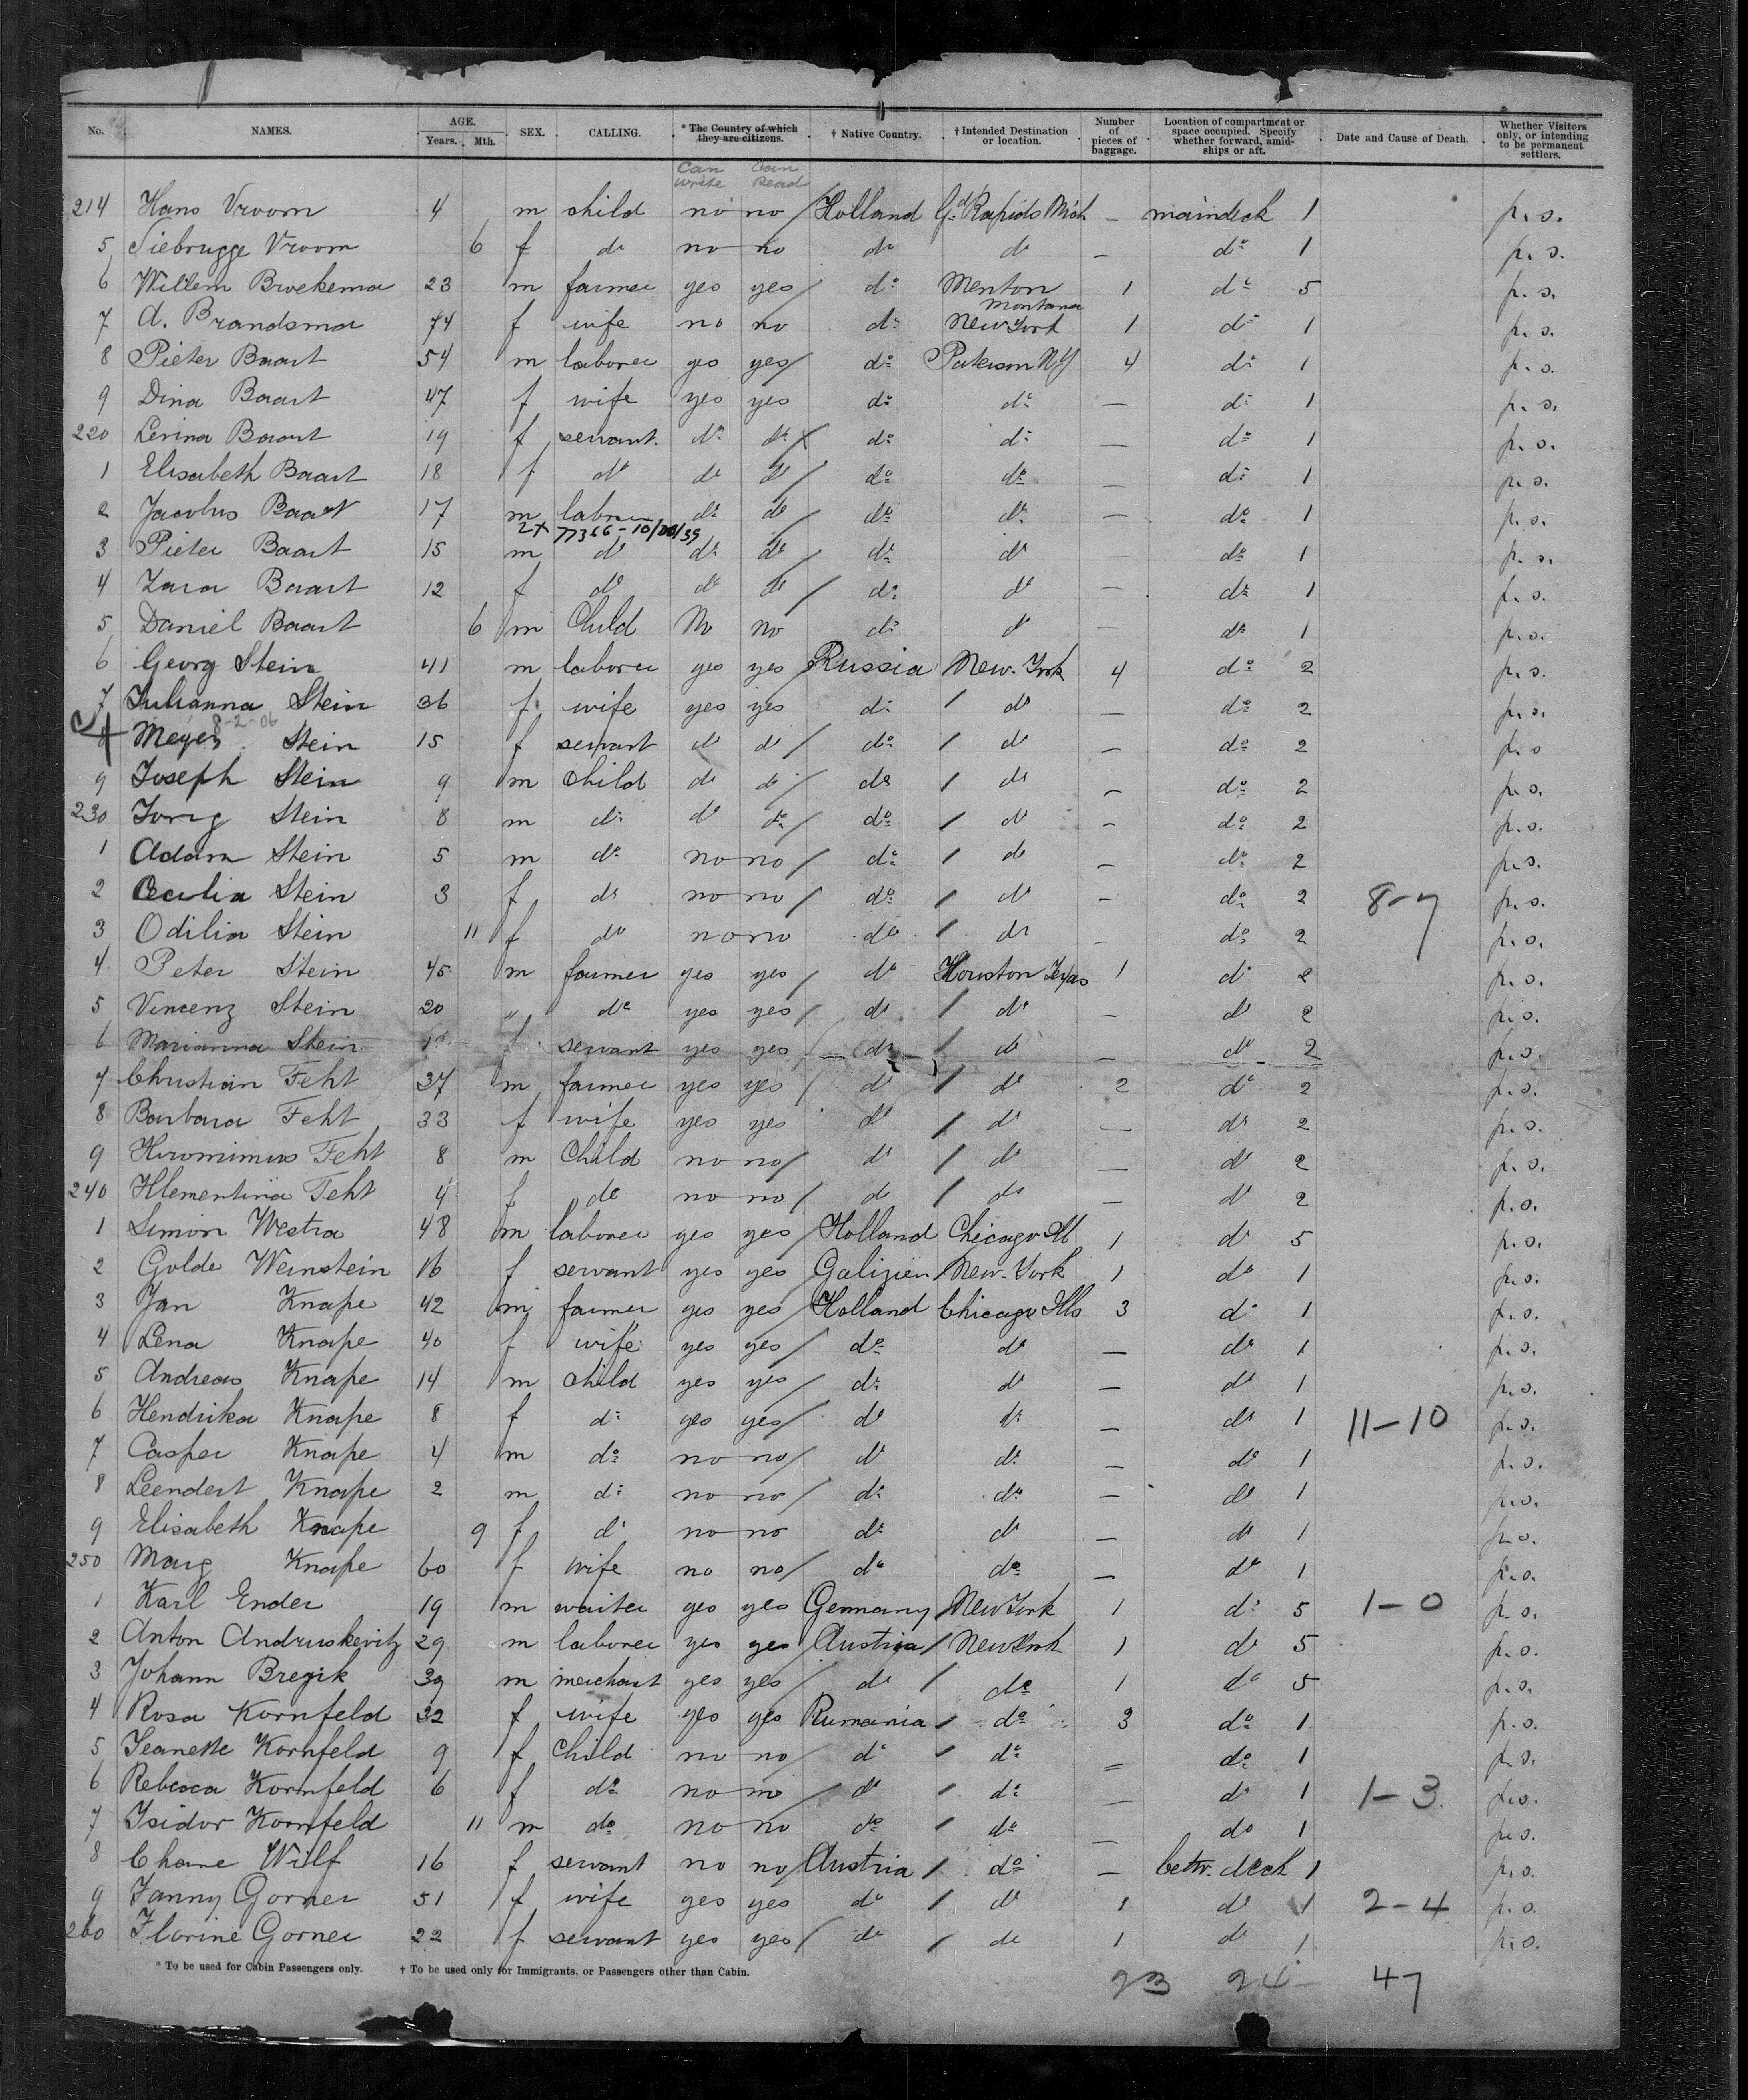 No. NAMES. AGE. Years. Mth. SEX. CALLING. * The Country of which they are citizens. † Native Country. † Intended Destination or location. Number of pieces of baggage. Location of compartment or space occupied. Specify whether forward, amidships or aft. Date and Cause of Death. Whether Visitors only, or intending to be permanent settlers.
Can write Can Read
214 Hans Vroom 4 m child no no / Holland Gd Rapids Mich — maindeck 1 p. s.
5 Siebrugge Vroom 6 f do no no do do — do 1 p. s.
6 Willem Broekema 23 m farmer yes yes / do Menton Montana 1 do 5 p. s.
7 A. Brandsma 74 f wife no no do New York 1 do 1 p. s.
8 Pieter Baart 54 m laborer yes yes / do Paterson NJ 4 do 1 p. s.
9 Dina Baart 47 f wife yes yes do do — do 1 p. s.
220 Levina Baart 19 f servant. do do / do do — do 1 p. s.
1 Elisabeth Baart 18 f do do do / do do — do 1 p. s.
2 Jacobus Baart 17 m laborer do do / do do — do 1 p. s.
3 Pieter Baart 15 m do do do / do do — do 1 p. s.
4 Zara Baart 12 f do do do / do do — do 1 p. s.
5 Daniel Baart 6 m Child No No do do — do 1 p. s.
6 Georg Stein 41 m laborer yes yes Russia New-York 4 do 2 p. s.
7 Julianna Stein 36 f wife yes yes do / do — do 2 p. s.
8-2-06
Meyer Stein 15 f servant do do / do / do — do 2 p. s
9 Joseph Stein 9 m Child do do / do / do — do 2 p. s.
230 Jorig Stein 8 m do do do / do / do — do 2 p. s.
1 Adam Stein 5 m do no no / do / do — do 2 p. s.
2 Cecilia Stein 3 f do no no / do / do — do 2 8-7 p. s.
3 Odilia Stein 11 f do no no do / do — do 2 p. s.
4 Peter Stein 45 m farmer yes yes / do Houston Texas 1 do 2 p. s.
5 Vincenz Stein 20 " do yes yes / do / do — do 2 p. s.
6 Marianna Stein f servant yes yes / do / do — do 2 p. s.
7 Christian Feht 37 m farmer yes yes / do / do 2 do 2 p. s.
8 Barbara Feht 33 f wife yes yes do / do — do 2 p. s.
9 Hironimus Feht 8 m Child no no / do / do — do 2 p. s.
240 Klementina Feht 4 f do no no / do / do — do 2 p. s.
1 Simon Westra 48 m laborer yes yes / Holland Chicago Ill 1 do 5 p. s.
2 Golde Weinstein 16 f servant yes yes Galizien / New-York 1 do 1 p. s.
3 Jan Knape 42 m farmer yes yes / Holland Chicago Ills 3 do 1 p. s.
4 Lena Knape 40 f wife yes yes / do do — do 1 p. s.
5 Andreas Knape 14 m Child yes yes / do do — do 1 p. s.
6 Hendrika Knape 8 f do yes yes / do do — do 1 11-10 p. s.
7 Casper Knape 4 m do no no / do do — do 1 p. s.
8 Leendert Knape 2 m do no no / do do — do 1 p. s.
9 Elisabeth Knape 9 f do no no do do — do 1 p. s.
250 Marg Knape 60 f wife no no / do do — do 1 p. s.
1 Karl Ender 19 m waiter yes yes Germany New York 1 do 5 1-0 p. s.
2 Anton Andruskevitz 29 m laborer yes yes / Austria / New York 1 do 5 p. s.
3 Johann Bregik 39 m merchant yes yes / do / do 1 do 5 p. s.
4 Rosa Kornfeld 32 f wife yes yes Rumania / do 3 do 1 p. s.
5 Jeanette Kornfeld 9 f Child no no / do / do = do 1 p. s.
6 Rebecca Kornfeld 6 f do no no / do / do — do 1 1-3. p. s.
7 Isidor Kornfeld 11 m do no no do / do — do 1 p. s.
8 Chane Wilf 16 f servant no no / Austria / do — betw. deck 1 p. s.
9 Fanny Gorner 51 f wife yes yes do / do 1 do 1 2-4 p. s.
260 Florine Gorner 22 f servant yes yes / do / do 1 do 1 p. s.
* To be used for Cabin Passengers only. † To be used only for Immigrants, or Passengers other than Cabin.
23 24 47